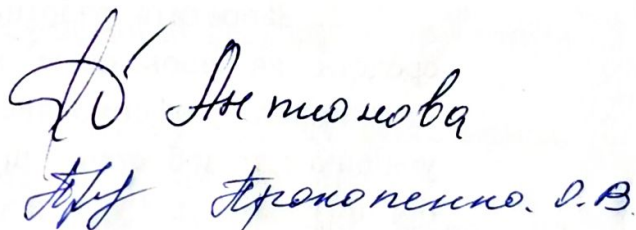 Антионова
Прокопенко. О.В.